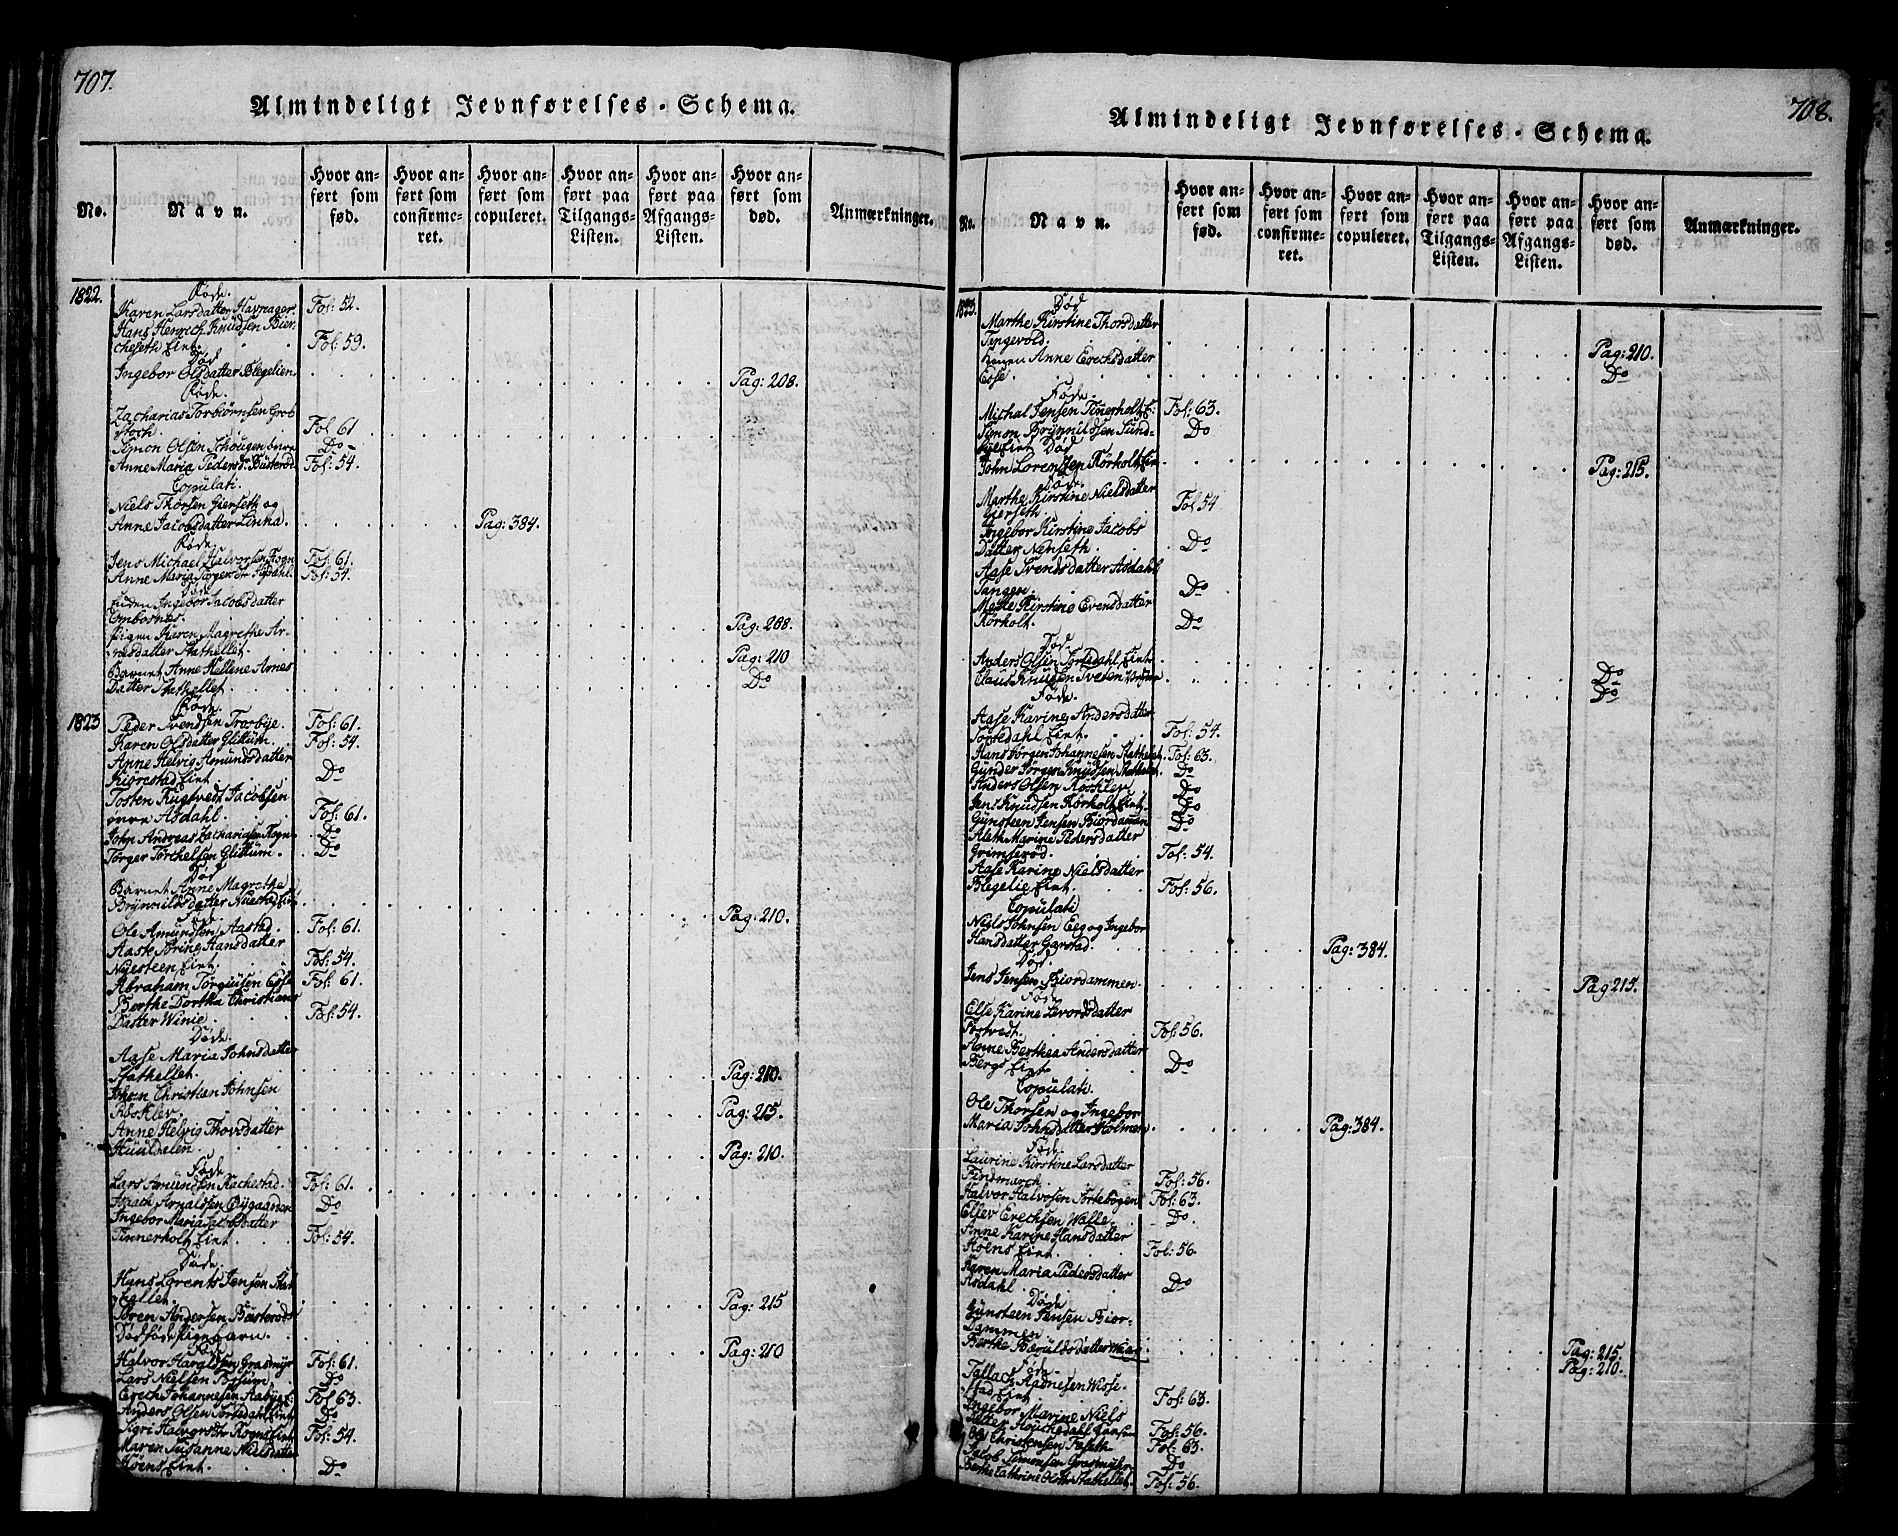 707.
Almindeligt Jevnførelses-Schema.
No.
Navn.
Hvor anført som fød.
Hvor anført som confirmeret.
Hvor anført som copuleret.
Hvor anført paa Tilgangs-Listen.
Hvor anført paa Afgangs-Listen.
Hvor anført som død.
Anmærkninger.
1822. Føde.
Karen Larsdatter Havrager. Fol: 52.
Hans Henrich Knudsen Bier-
cheseth Eint. Fol: 59.
Død
Ingebor Olsdatter Blegelien. Pag: 208.
Føde.
Zacharias Torbiørnsen Grob
stoch. Fol 61
Simon Olsen Schougen Do
Anne Maria Pedersdr Busterød Fol: 54.
Copulati.
Niels Thorsen Gierseth og
Anne Jacobsdatter Linna. Pag: 384.
Føde.
Jens Michael Halvorsen Rogn Fol: 61.
Anne Maria Jørgensdr Asdahl. Fol: 54.
Enken Ingebor Jacobsdatter
Ombosnes. Pag: 208.
Pigen Karen Magrethe Ar-
nesdatter Stathellet. Pag: 210
Barnet Anne Hellene Arnes
Datter Stathellet. Do
Føde.
1823 Peder Svendsen Trosbye. Fol: 61.
Karen Olsdatter Glittum. Fol: 54.
Anne Helvig Amundsdatter
Kiørestad Eint. Do
Tosten Rugtvedt Jacobsen
Asdahl. Fol: 61.
John Andreas Zachariasen Rogn Do
Torger Torchelsen Glittum. Do
Død
Barnet Anne Magrethe
Brynnildsdatter Nuestad Eint Pag: 210.
Føde.
Ole Amundsen Aastad. Fol: 61.
Aaste Torine Hansdatter
Nuesteen Eint. Fol: 54.
Abraham Torgiusen Esse Fol: 61.
Berthe Dorthea Christians
Datter Winie. Fol: 54.
Døde.
Aase Maria Johnsdatter
Stathellet. Pag: 210.
Johan Christian Johnsen
Rosklev. Pag: 215.
Anne Helvig Thovsdatter
Huuldalen. Pag: 210.
Føde
Lars Amundsen Kachestad. Fol: 61.
Arnaldsen Øygaarden Do
Ingebor Maria Jacobsdatter
Tinnerholt Eint. Fol: 54.
Døde.
Hans Lorents Jensen Stat
hellet. Pag: 215
Søren Andersen Busterøds
Dødføde Pigebarn. Pag: 210
Føde
Halvor Haraldsen Grasmyr Fol: 61.
Lars Nielsen Fossum. Do
Erech Johannesen Aabye E: Fol: 63.
Anders Olsen Tortedahl Eint Do
Sigri Halvorsdr Rogns Eint Fol: 54.
Maren Susanne Nielsdatter
Hoens Eint. Do
708.
Almindeligt Jevnførelses-Schema.
No.
Navn.
Hvor anført som fød.
Hvor anført som confirmeret.
Hvor anført som copuleret.
Hvor anført paa Tilgangs-Listen.
Hvor anført paa Afgangs-Listen.
Hvor anført som død.
Anmærkninger.
1823. Død
Marthe Kirstine Thorsdatter
Tangevold. Pag: 210.
Anne Erechsdatter
Esse. Do
Føde.
Michal Jensen Tinerholt E: Fol: 63.
Simon Brynnildsen Sund-
bye Eint Do
Død
John Lorentzen Rørholt Eie Pag: 215.
Føde.
Marthe Kirstine Nielsdatter
Gierseth. Fol 54
Ingebor Kirstine Jacobs
Datter Nenseth. Do
Aase Svendsdatter Asdahl
Tangen. Do
Mette Kirstine Evensdatter
Rørholt. Do
Død.
Anders Olsen Tortedahl Eint Do
Claus Knudsen Do
Føde.
Aase Karine Andersdatter
Tortedahl Eint. Fol: 54.
Hans Jørgen Johannesen Stathelet. Fol: 63.
Gunder Jørgen Knudsen Stathelet. Do
Anders Olsen Rosklev Do
Jens Knudsen Rørholt Eint. Do
Gunsteen Jensen Biordamen Do
Aleth Marine Pedersdatter
Grimserød. Fol: 54.
Aase Karine Nielsdatter
Blegelie Eint. Fol: 56.
Copulati
Niels Johnsen Eeg og Ingebor
Hansdatter Garstad. Pag: 384.
Død.
Jens Jensen Biordammen. Pag 215.
Føde.
Else Karine Levordsdatter
Tostvedt. Fol: 56.
Anne Berthea Andersdatter
Bergs Eint Do
Copulati.
Ole Thorsen og Ingebor
Maria Johnsdatter Holmen. Pag: 384.
Føde
Laurine Kirstine Larsdatter
Findmarch. Fol: 56.
Halvor Halvosen Sortebogen Fol: 63.
Ellev Erechsen Walle. Do.
Anne Karine Hansdatter
Hoens Eint. Fol: 56.
Karen Maria Pedersdatter
Asdahl. Do
Døde
Gunsteen Jensen Bior-
dammen Pag: 215.
Berthe Bæruldsdatter Pag: 210.
Føde.
Tallack Aadnesen Wisse-
stad Eint Fol: 63.
Ingebor Marine Niels
Datter Fol: 56.
Ole Christensen Fosseth Fol: 63.
Jacob Simonsen Grasmyhr Do
Berthe Cathrine Olsdr Stathellet. Fol: 56.